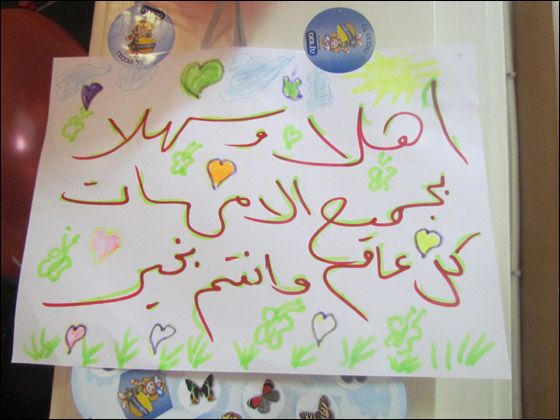 اهلا وسهلا
بجميع الامهات
كل عام وانتم بخير